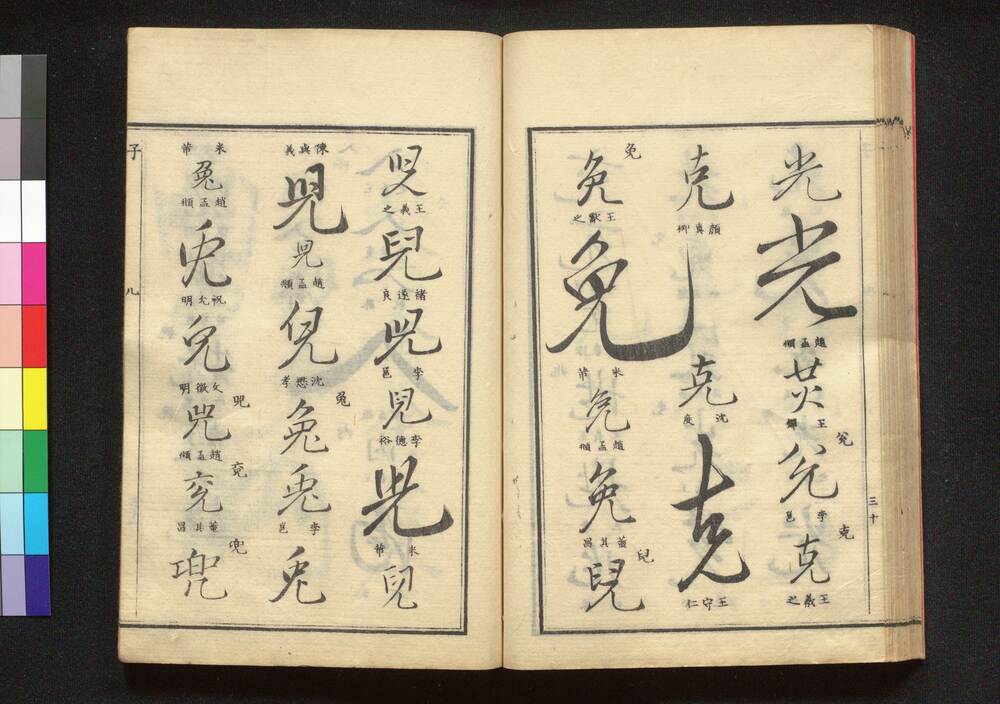 光
光
趙孟頫
炗
王鐸
兊
㕣
李邕
克
克
王羲之
克
顔真卿
克
沈度
克
王守仁
免
免
王獻之
免
米芾
免
趙孟頫
免
董其昌
兒
兒
三十
兒
王羲之
兒
褚遂良
兒
李邕
兒
李德裕
兒
米芾
兒
陳與義
兒
趙孟頫
兒
沈懋孝
兔
兔
兔
李邕
兔
米芾
兔
趙孟頫
兔
祝允明
兔
文徵明
兕
兕
趙孟頫
兗
兗
董其昌
兜
兜
子
儿